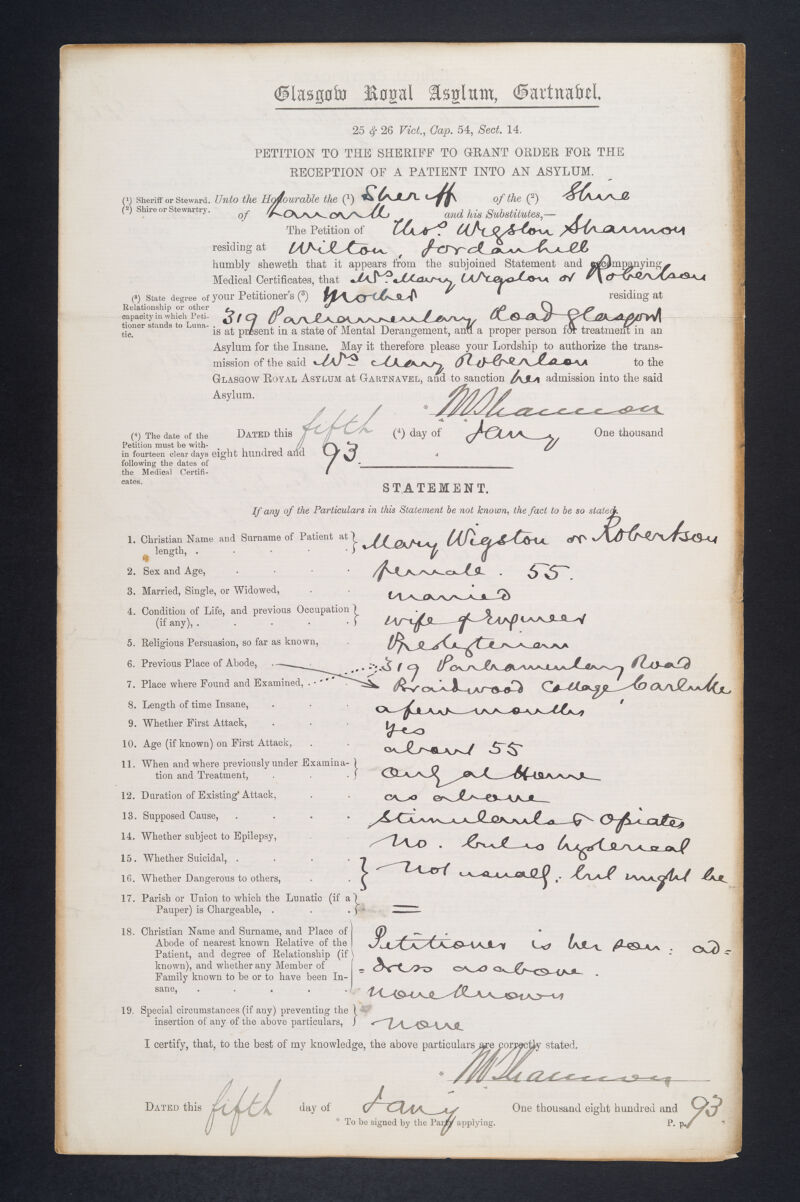 Glasgow Royal Asylum, Gartnavel.
25 & 26 Vict., Cap. 54, Sect. 14.
PETITION TO THE SHERIFF TO GRANT ORDER FOR THE
RECEPTION OF A PATIENT INTO AN ASYLUM.
(1) Sheriff or Steward. Unto the Honourable the (1) Sheriff of the (2) Shire
(2) Shire or Stewartry. of Lanark and his Substitutes,—
The Petition of Thos. Wigston Shannon
residing at Wilton, Jordanhill
humbly sheweth that it appears from the subjoined Statement and accompanying
Medical Certificates, that Mrs. Mary Wigston or Robertson
(3) State degree of Relationship or other capacity in which Petitioner stands to Lunatic.
your Petitioner's (3) Mother residing at
319 Parliamentary Road Glasgow
is at present in a state of Mental Derangement, and a proper person for treatment in an
Asylum for the Insane. May it therefore please your Lordship to authorize the trans-
mission of the said Mrs Mary Robertson to the
GLASGOW ROYAL ASYLUM AT GARTNAVEL, and to sanction her admission into the said
Asylum.
* TWShannon
(4) The date of the Petition must be within fourteen clear days following the dates of the Medical Certificates.
DATED this fifth (4) day of Jany One thousand
eight hundred and 93.
STATEMENT.
If any of the Particulars in this Statement be not known, the fact to be so stated.
1. Christian Name and Surname of Patient at
length, . Mary Wigston or Robertson
2. Sex and Age, female. 55.
3. Married, Single, or Widowed, married
4. Condition of Life, and previous Occupation
(if any), . wife of Engineer
5. Religious Persuasion, so far as known, Presbyterian
6. Previous Place of Abode, 319 Parliamentary Road
7. Place where Found and Examined, Braidwood Cottage, Carluke
8. Length of time Insane, a few months
9. Whether First Attack, yes
10. Age (if known) on First Attack, about 55
11. When and where previously under Examina-
tion and Treatment, only at Home
12. Duration of Existing Attack, as above
13. Supposed Cause, Stimulants & Opiates
14. Whether subject to Epilepsy, No. but is hysterical
15. Whether Suicidal, .
16. Whether Dangerous to others, Not usually: but might be
17. Parish or Union to which the Lunatic (if a
Pauper) is Chargeable, . =
18. Christian Name and Surname, and Place of
Abode of nearest known Relative of the Petitioner is her son: ad=
Patient, and degree of Relationship (if
known), and whether any Member of =dress as above.
Family known to be or to have been In-
sane, none known
19. Special circumstances (if any) preventing the
insertion of any of the above particulars, none
I certify, that, to the best of my knowledge, the above particulars are correctly stated.
* TWShannon
DATED this fifth day of Jany One thousand eight hundred and 93.
* To be signed by the Party applying. P. p.